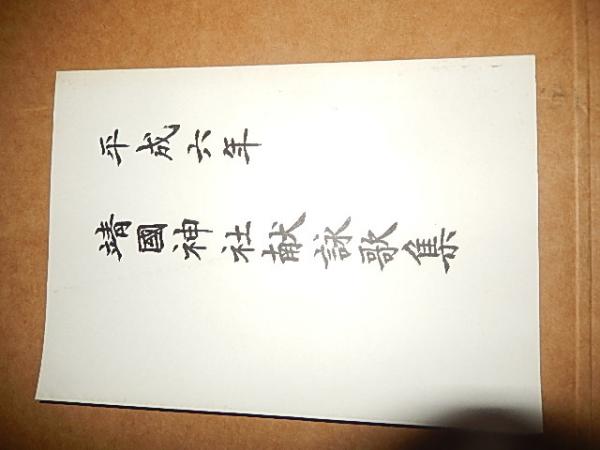 平成六年
靖國神社献詠歌集